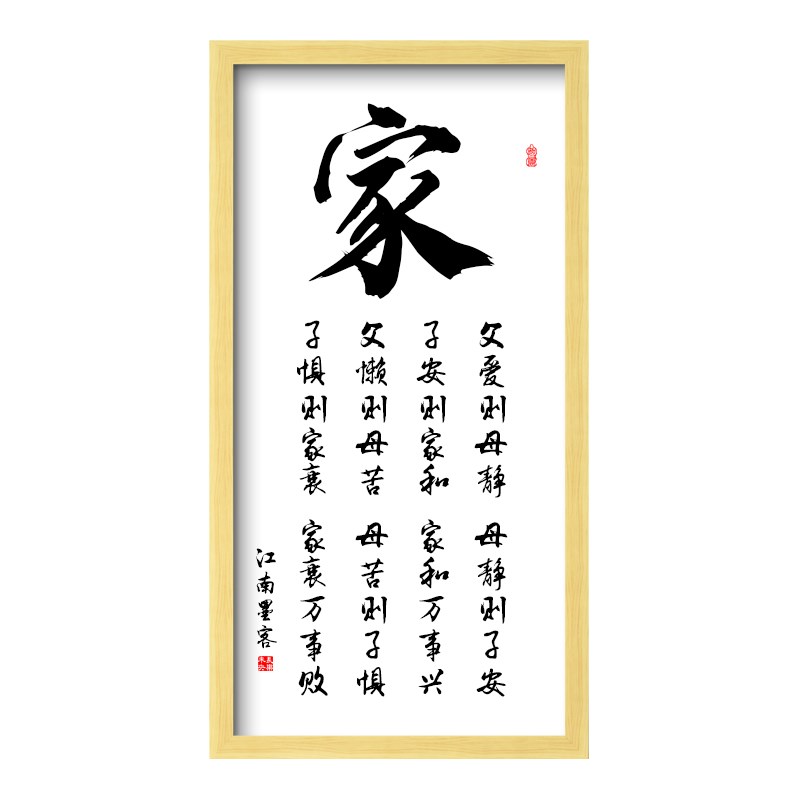 家
父爱则母静
母静则子安
子安则家和
家和万事兴
父懒则母苦
母苦则子惧
子惧则家衰
家衰万事败
江南墨客